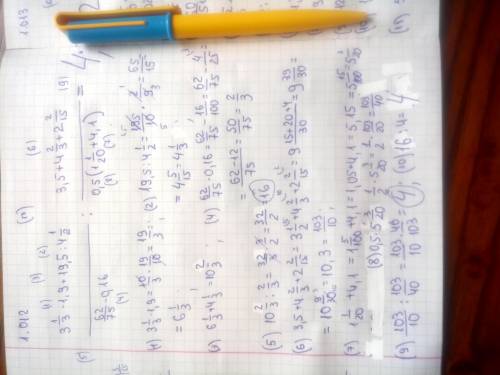 1.013
1.012
(1) (3) (2) (11) (6)
3 1/3 · 1,9 + 19,5 : 4 1/2 3,5 + 4 2/3 + 2 2/15 (9)
(5) : = 4
62/75 - 0,16 0,5 (1 1/20 + 4,1)
(4) (8) (7)
(1) 3 1/3 · 1,9 = 10/3 · 19/10 = 19/3 = 6 1/3
(2) 19,5 : 4 1/2 = 195/10 · 2/9 = 65/15 = 4 5/15 = 4 1/3
(3) 6 1/3 + 4 1/3 = 10 2/3 ; (4) 62/75 - 0,16 = 62/75 - 16/100 = 62/75 - 4/25 =
= 62-12/75 = 50/75 = 2/3
(5) 10 2/3 : 2/3 = 32/3 · 3/2 = 32/2 = 16
(6) 3,5 + 4 2/3 + 2 2/15 = 3 1/2 + 4 2/3 + 2 2/15 = 9 15+20+4/30 = 9 39/30
= 10 9/30 = 10,3 = 103/10 ;
(7) 1 1/20 + 4,1 = 1 5/100 + 4,1 = 1,05 + 4,1 = 5,15 = 5 15/100 = 5 3/20
(8) 0,5 · 5 3/20 = 1/2 · 5 3/20 = 1/2 · 103/20 = 103/40
(9) 103/10 : 103/40 = 103·40/10·103 = 4 ; (10) 16 : 4 = 4